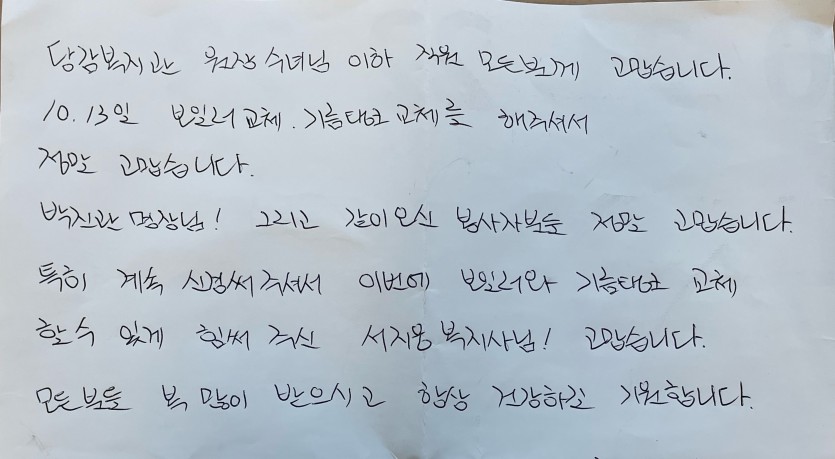 당감복지관 원장수녀님 이하 직원 모든분께 고맙습니다.
10.13일 보일러교체. 기름탱크교체를 해주셔서
정말 고맙습니다.
박진관명장님! 그리고 같이오신 봉사자분들 정말 고맙습니다.
특히 계속 신경써주셔서 이번에 보일러와 기름탱크 교체
할수 있게 힘써주신 서지웅복지사님! 고맙습니다.
모든분들 복 많이 받으시고 항상 건강하길 기원합니다.